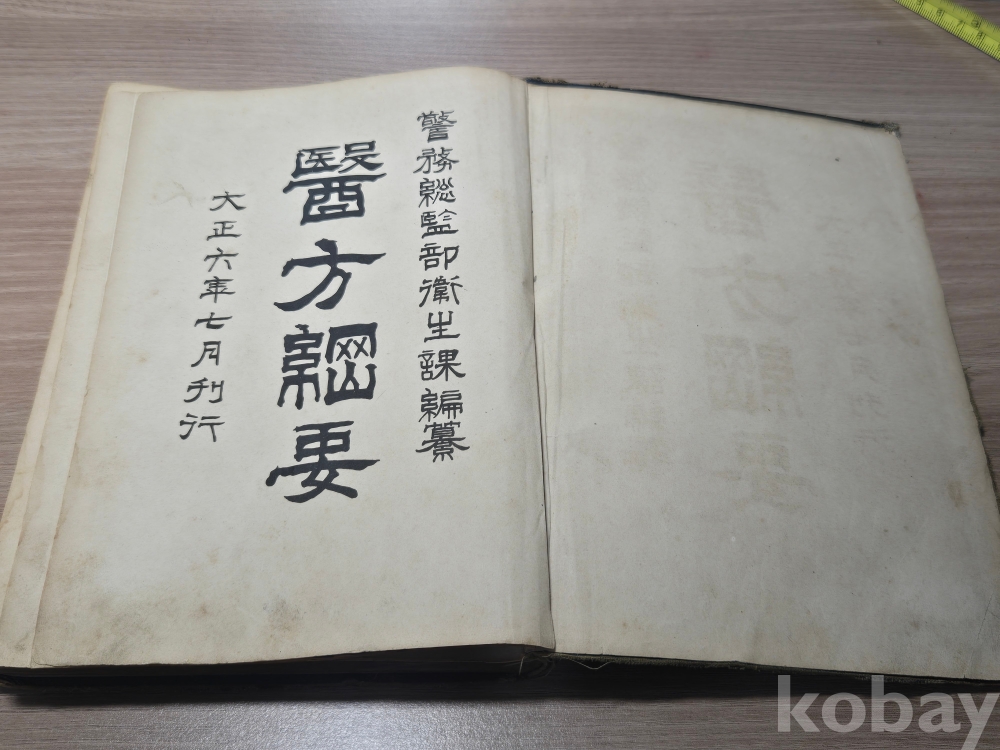 警務總監部衛生課編纂
醫方綱要
大正六年七月刊行
kobay